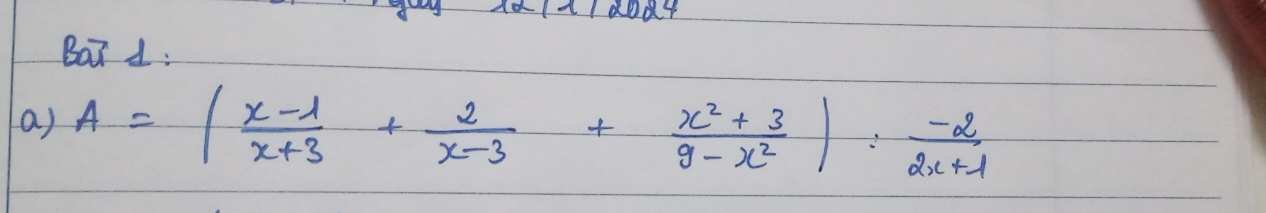 Ngày 12/1/2024
Bài 1:
a) A = ( \frac{x-1}{x+3} + \frac{2}{x-3} + \frac{x²+3}{9-x²} ) : \frac{-2}{2x+1}